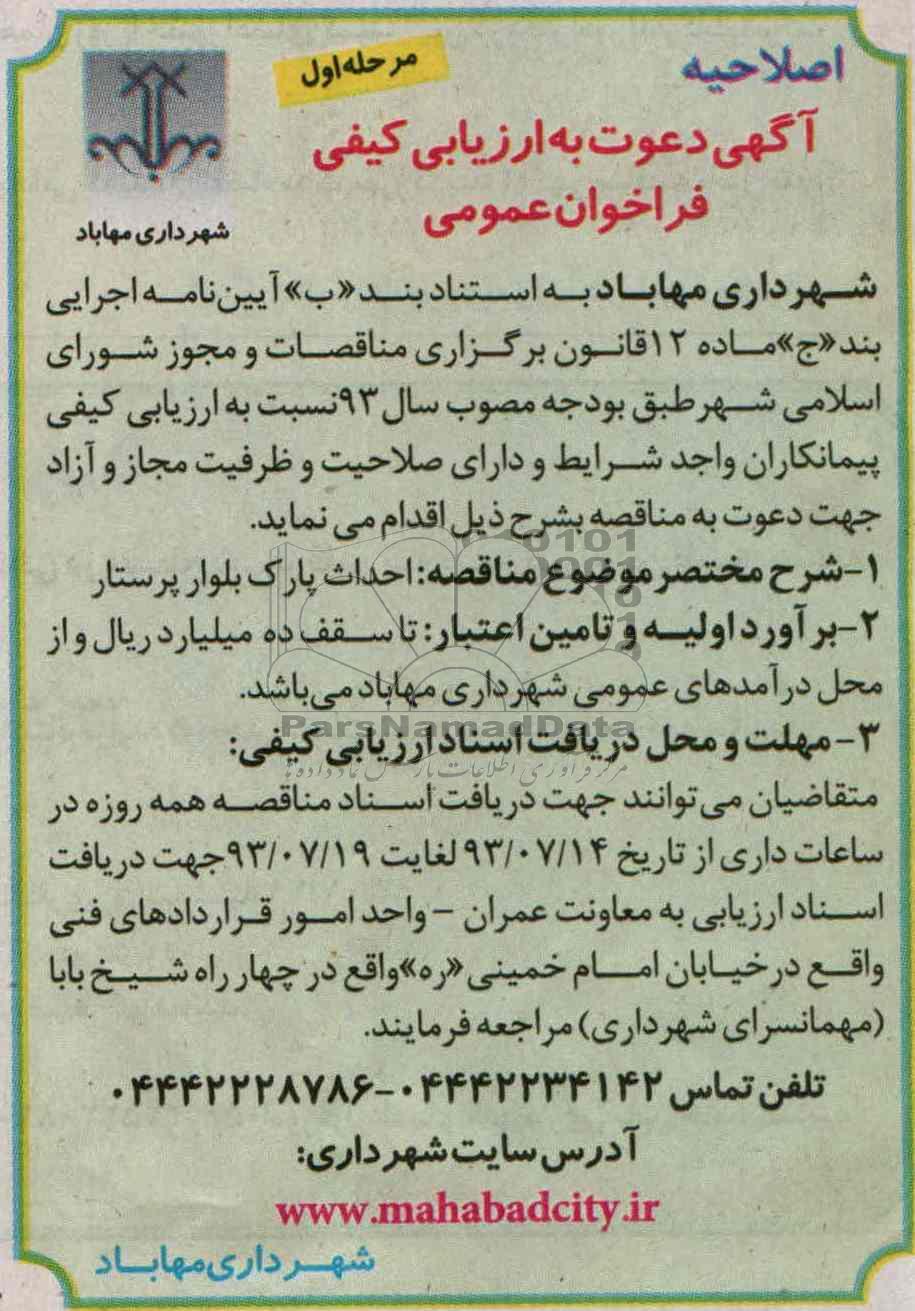 اصلاحیه
مرحله اول
آگهی دعوت به ارزیابی کیفی
فراخوان عمومی
شهرداری مهاباد
شهرداری مهاباد به استناد بند «ب» آیین‌نامه اجرایی
بند «ج» ماده ۱۲ قانون برگزاری مناقصات و مجوز شورای
اسلامی شهر طبق بودجه مصوب سال ۹۳ نسبت به ارزیابی کیفی
پیمانکاران واجد شرایط و دارای صلاحیت و ظرفیت مجاز و آزاد
جهت دعوت به مناقصه بشرح ذیل اقدام می نماید.
۱- شرح مختصر موضوع مناقصه: احداث پارک بلوار پرستار
۲- برآورد اولیه و تامین اعتبار: تا سقف ده میلیارد ریال و از
محل درآمدهای عمومی شهرداری مهاباد می‌باشد.
ParsNamadData
۳- مهلت و محل دریافت اسناد ارزیابی کیفی:
مرکز فرآوری اطلاعات پارس نماد داده‌ها
متقاضیان می‌توانند جهت دریافت اسناد مناقصه همه روزه در
ساعات داری از تاریخ ۹۳/۰۷/۱۴ لغایت ۹۳/۰۷/۱۹ جهت دریافت
اسناد ارزیابی به معاونت عمران – واحد امور قراردادهای فنی
واقع در خیابان امام خمینی «ره» واقع در چهار راه شیخ بابا
(مهمانسرای شهرداری) مراجعه فرمایند.
تلفن تماس ۰۴۴۴۲۲۳۴۱۴۲-۰۴۴۴۲۲۲۸۷۸۶
آدرس سایت شهرداری:
www.mahabadcity.ir
شهرداری مهاباد